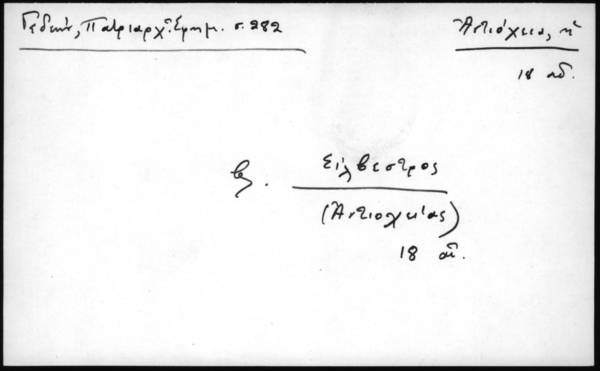 Γεδεών, Πατριαρχ. Ἐφημ. σ. 282
Ἀντιόχεια, ἡ
18 αἰ.
βλ. Σίλβεστρος
(Ἀντιοχείας)
18 αἰ.